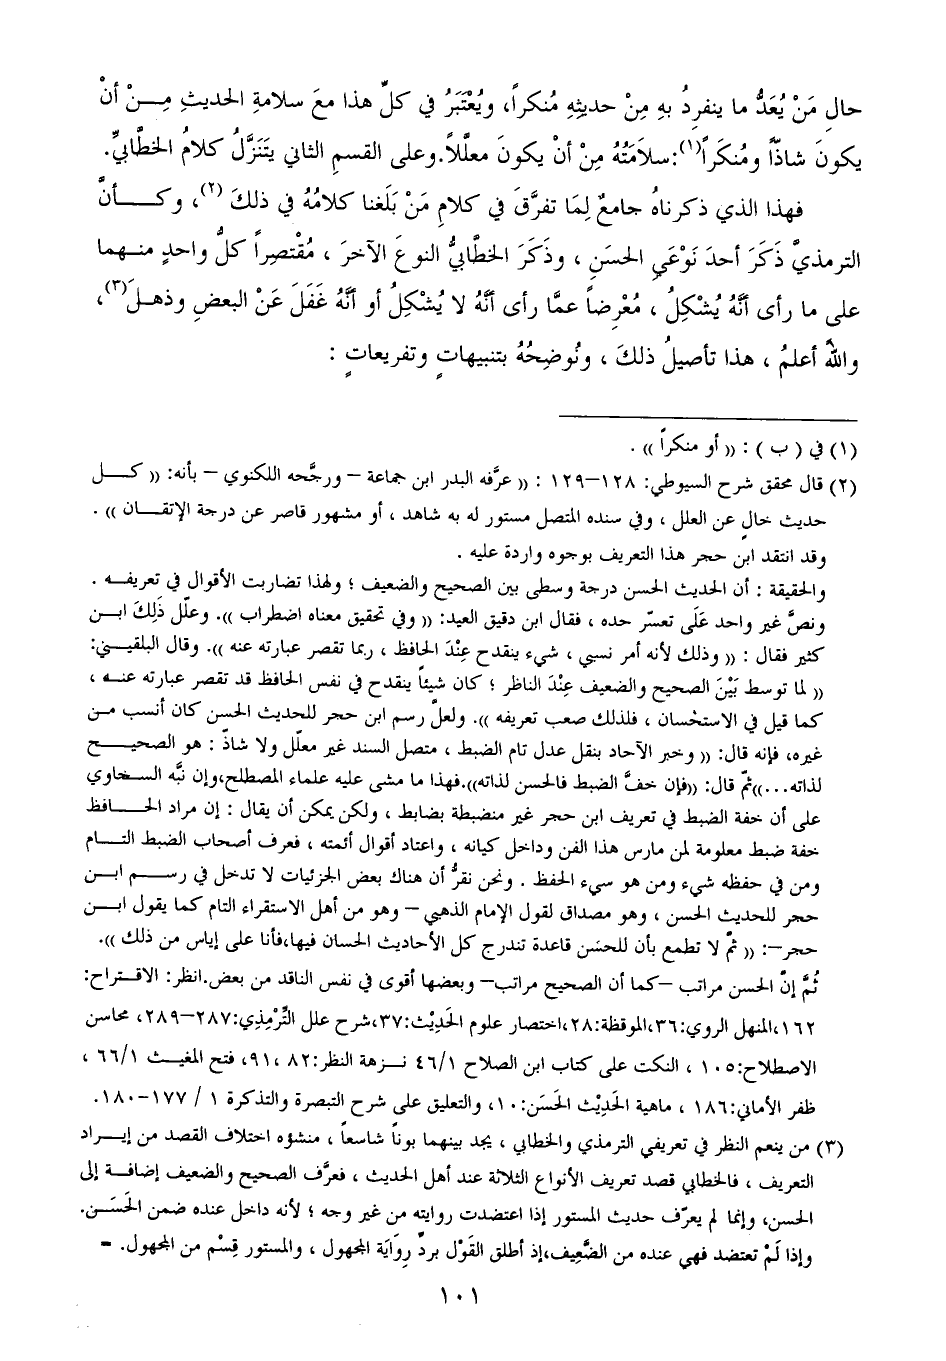 حالِ مَنْ يُعَدُّ ما ينفرِدُ بِهِ مِنْ حديثِهِ مُنكراً، ويُعْتَبَرُ في كلِّ هذا معَ سلامةِ الحديثِ مِـــنْ أنْ
يكونَ شاذّاً ومُنكَراً(١):سلامَتُهُ مِنْ أنْ يكونَ معلَّلاً.وعلى القسمِ الثاني يتَنَزَّلُ كلامُ الخطَّابيِّ.
فهذا الذي ذكرناهُ جامعٌ لِمَا تفرَّقَ في كلامِ مَنْ بَلَغنا كلامُهُ في ذلكَ (٢)، وكـــأنَّ
الترمذيَّ ذَكَرَ أحدَ نَوْعَي الحسَنِ ، وذَكَرَ الخطَّابيُّ النوعَ الآخرَ ، مُقْتصِراً كلُّ واحدٍ منـهما
على ما رأى أنَّهُ يُشْكِلُ ، مُعْرِضاً عمَّا رأى أنَّهُ لا يُشْكِلُ أو أنَّهُ غَفَلَ عَنْ البعضِ وذهـلَ(٣)،
واللهُ أعلمُ ، هذا تأصيلُ ذلكَ ، ونُوضِحُهُ بتنبيهاتٍ وتفريعاتٍ :
(١) في ( ب ) : (( أو منكراً )) .
(٢) قال محقق شرح السيوطي: ١٢٨–١٢٩ : (( عرَّفه البدر ابن جماعة – ورجَّحه اللكنوي – بأنه: (( كـــل
حديث خالٍ عن العلل ، وفي سنده المتصل مستور له به شاهد ، أو مشهور قاصر عن درجة الإتقـــان )) .
وقد انتقد ابن حجر هذا التعريف بوجوه واردة عليه .
والحقيقة : أن الحديث الحسن درجة وسطى بين الصحيح والضعيف ؛ ولهذا تضاربت الأقوال في تعريفـــه .
ونصَّ غير واحد عَلَى تعسّر حده ، فقال ابن دقيق العيد: (( وفي تحقيق معناه اضطراب )). وعلّل ذَلِكَ ابـــن
كثير فقال : (( وذلك لأنه أمر نسبي ، شيء ينقدح عِنْدَ الحافظ ، ربما تقصر عبارته عنه )). وقال البلقيـــني:
(( لما توسط بَيْنَ الصحيح والضعيف عِنْدَ الناظر ؛ كان شيئاً ينقدح في نفس الحافظ قد تقصر عبارته عنـــه ،
كما قيل في الاستحْسان ، فلذلك صعب تعريفه )). ولعلّ رسم ابن حجر للحديث الحسن كان أنسب مـــن
غيره، فإنه قال: (( وخبر الآحاد بنقل عدل تام الضبط ، متصل السند غير معلّل ولا شاذّ : هو الصحيـــح
لذاته...))ثمّ قال: ((فإن خفَّ الضبط فالحسن لذاته)).فهذا ما مشى عليه علماء المصطلح،وإن نبَّه السخاوي
على أن خفة الضبط في تعريف ابن حجر غير منضبطة بضابط ، ولكن يمكن أن يقال : إن مراد الحـــافظ
خفة ضبط معلومة لمن مارس هذا الفن وداخل كيانه ، واعتاد أقوال أئمته ، فعرف أصحاب الضبط التـــام
ومن في حفظه شيء ومن هو سيء الحفظ . ونحن نقرُّ أن هناك بعض الجزئيات لا تدخل في رســـم ابـــن
حجر للحديث الحسن ، وهو مصداق لقول الإمام الذهبي – وهو من أهل الاستقراء التام كما يقول ابـــن
حجر–: (( ثمّ لا تطمع بأن للحسَن قاعدة تندرج كل الأحاديث الحسان فيها،فأنا على إياس من ذلك )).
ثُمَّ إنّ الحسن مراتب –كما أن الصحيح مراتب– وبعضها أقوى في نفس الناقد من بعض.انظر: الاقـــتراح:
١٦٢،المنهل الروي:٣٦،الموقظة:٢٨،اختصار علوم الحَدِيْث:٣٧،شرح علل التِّرْمِذِي:٢٨٧–٢٨٩، محاسن
الاصطلاح:١٠٥ ، النكت على كتاب ابن الصلاح ٤٦/١ نـــزهة النظر:٨٢ ،٩١، فتح المغيـــث ٦٦/١ ،
ظفر الأماني:١٨٦ ، ماهية الحَدِيْث الحَسَن:١٠، والتعليق على شرح التبصرة والتذكرة ١ / ١٧٧–١٨٠.
(٣) من ينعم النظر في تعريفي الترمذي والخطابي ، يجد بينهما بوناً شاسعاً ، منشؤه اختلاف القصد من إيـــراد
التعريف ، فالخطابي قصد تعريف الأنواع الثلاثة عند أهل الحديث ، فعرَّف الصحيح والضعيف إضافـــة إلى
الحسن، وإنما لم يعرّف حديث المستور إذا اعتضدت روايته من غير وجه ؛ لأنه داخل عنده ضمن الحَسَـــن.
وإذا لَمْ تعتضد فهي عنده من الضَّعِيف،إذ أطلق القَوْل بردِّ رِوَايَة المجهول ، والمستور قِسْم من المجهول. –
١٠١